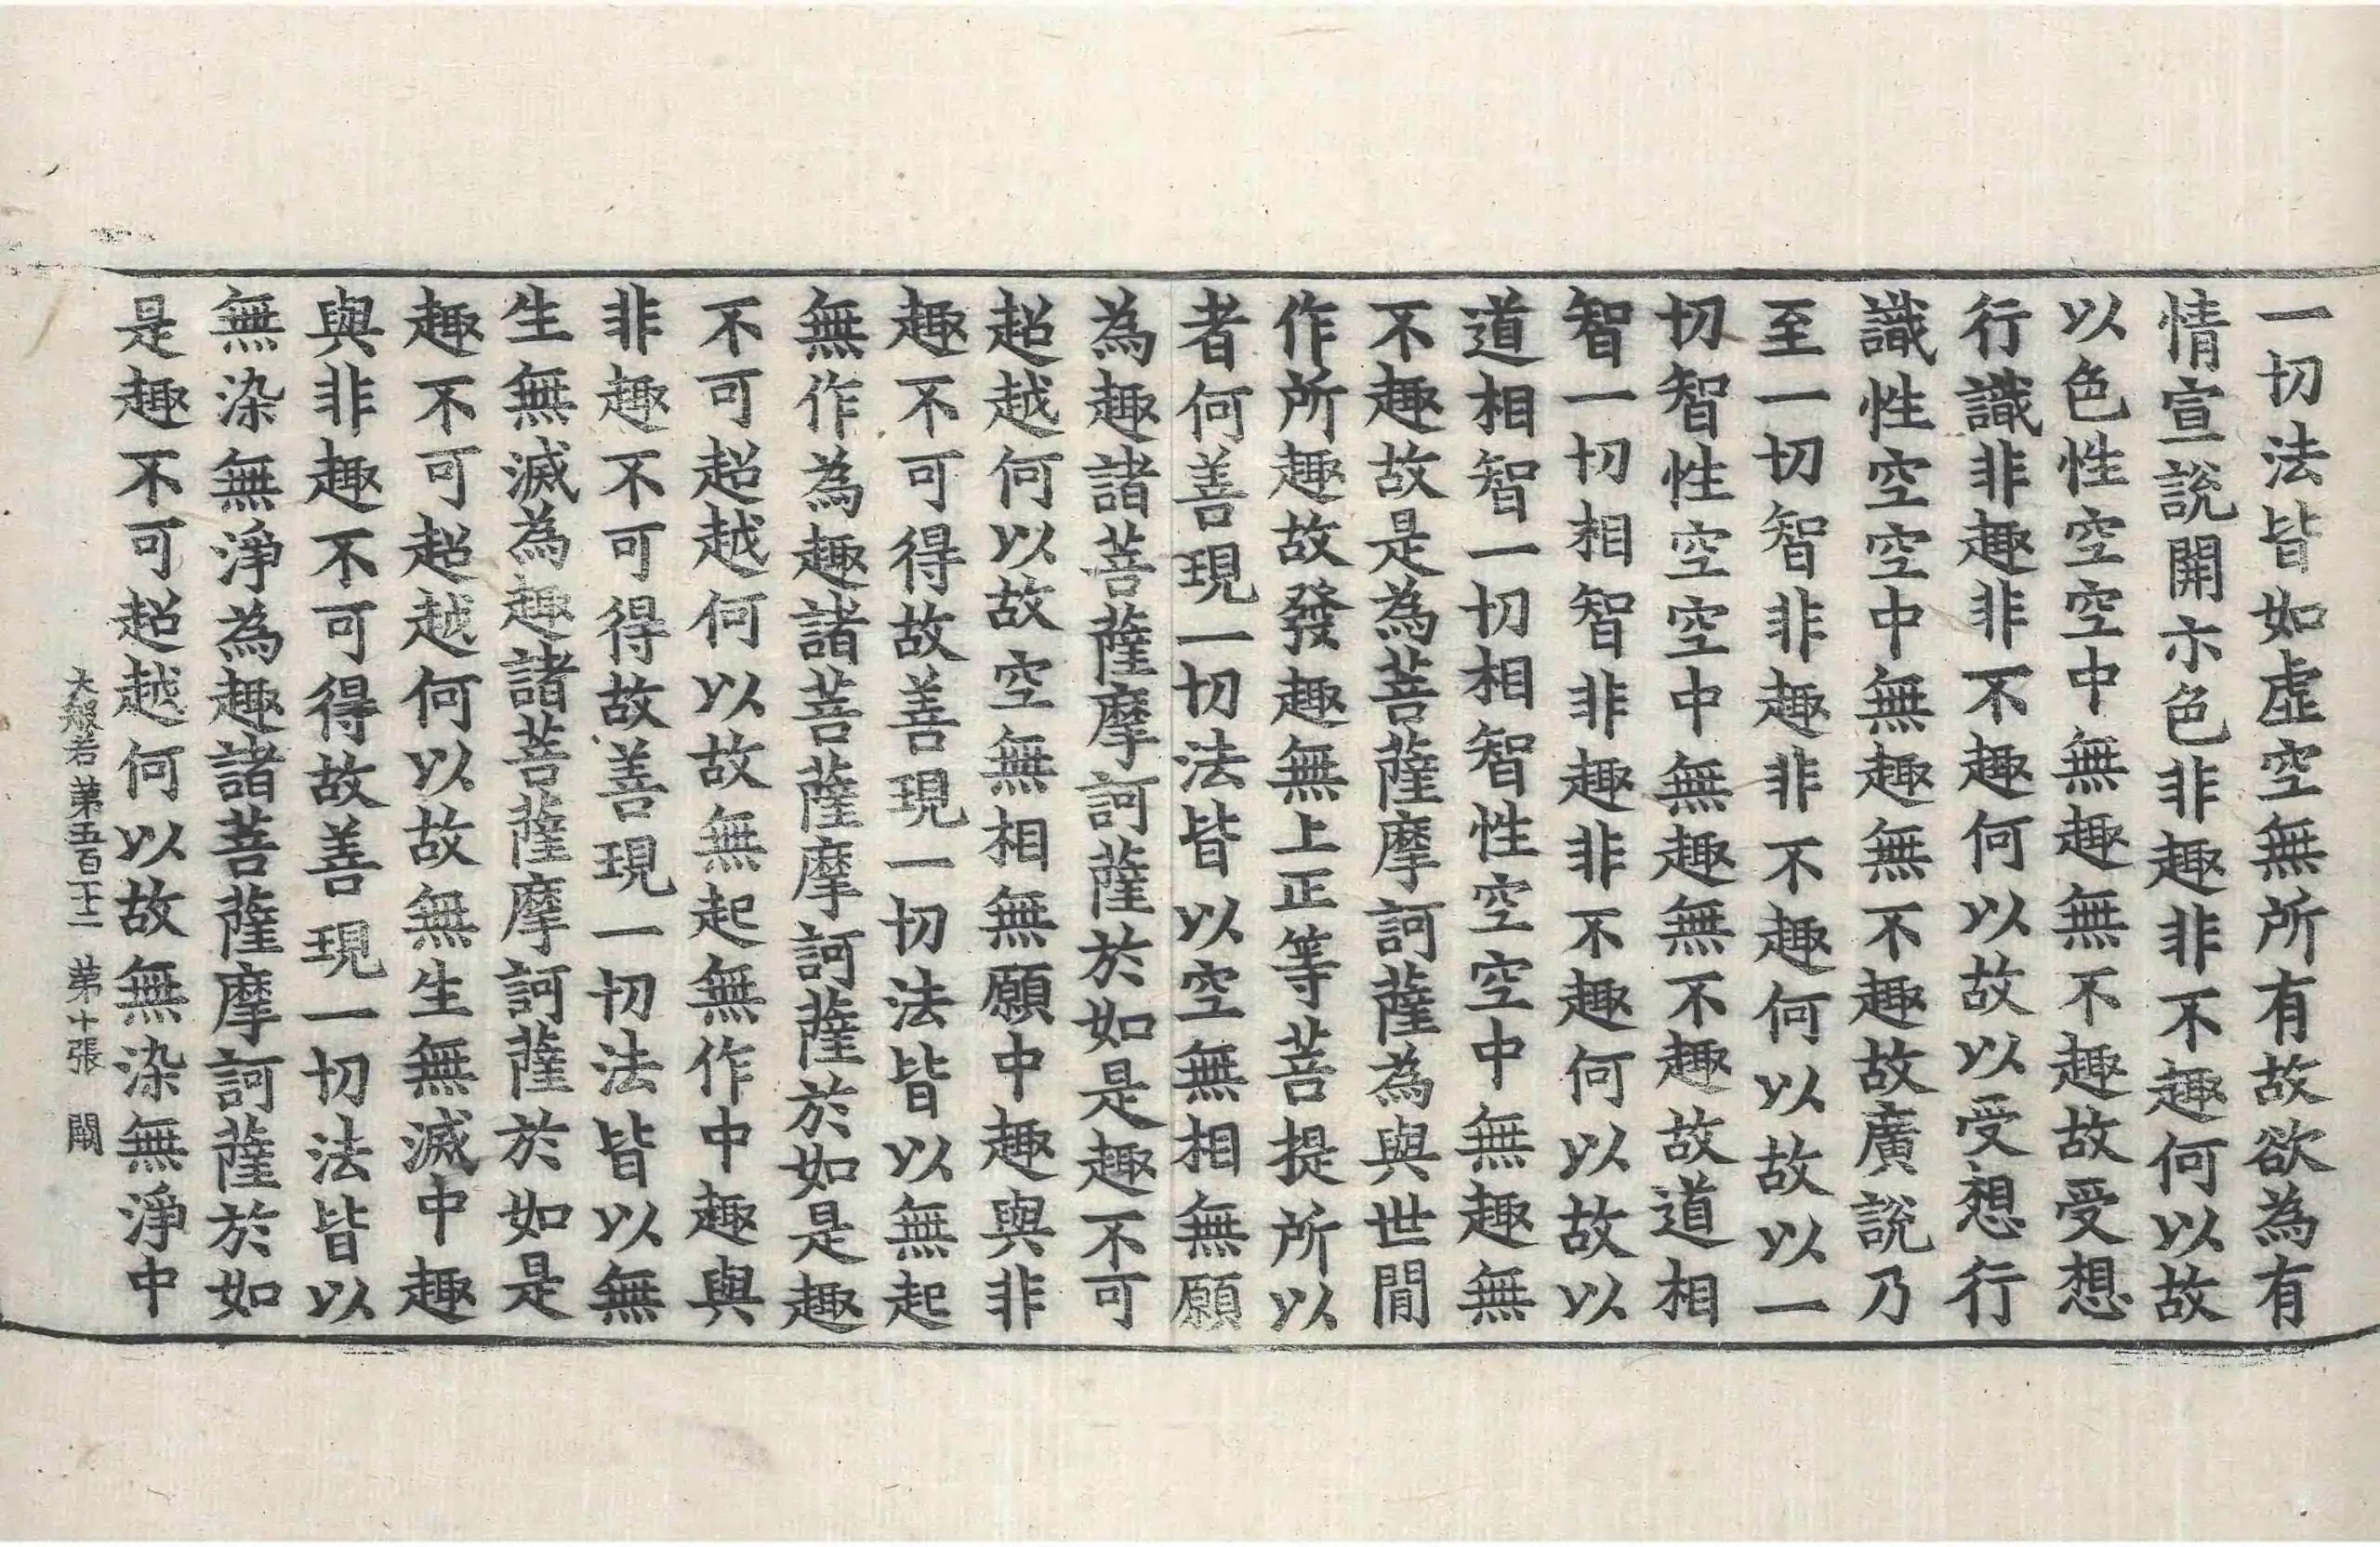 一切法皆如虛空無所有故欲為有
情宣說開示色非趣非不趣何以故
以色性空空中無趣無不趣故受想
行識非趣非不趣何以故以受想行
識性空空中無趣無不趣故廣說乃
至一切智非趣非不趣何以故以一
切智性空空中無趣無不趣故道相
智一切相智非趣非不趣何以故以
道相智一切相智性空空中無趣無
不趣故是為菩薩摩訶薩為與世間
作所趣故發趣無上正等菩提所以
者何善現一切法皆以空無相無願
為趣諸菩薩摩訶薩於如是趣不可
超越何以故空無相無願中趣與非
趣不可得故善現一切法皆以無起
無作為趣諸菩薩摩訶薩於如是趣
不可超越何以故無起無作中趣與
非趣不可得故善現一切法皆以無
生無滅為趣諸菩薩摩訶薩於如是
趣不可超越何以故無生無滅中趣
與非趣不可得故善現一切法皆以
無染無淨為趣諸菩薩摩訶薩於如
是趣不可超越何以故無染無淨中
大般若第五百十二 第十張 闕